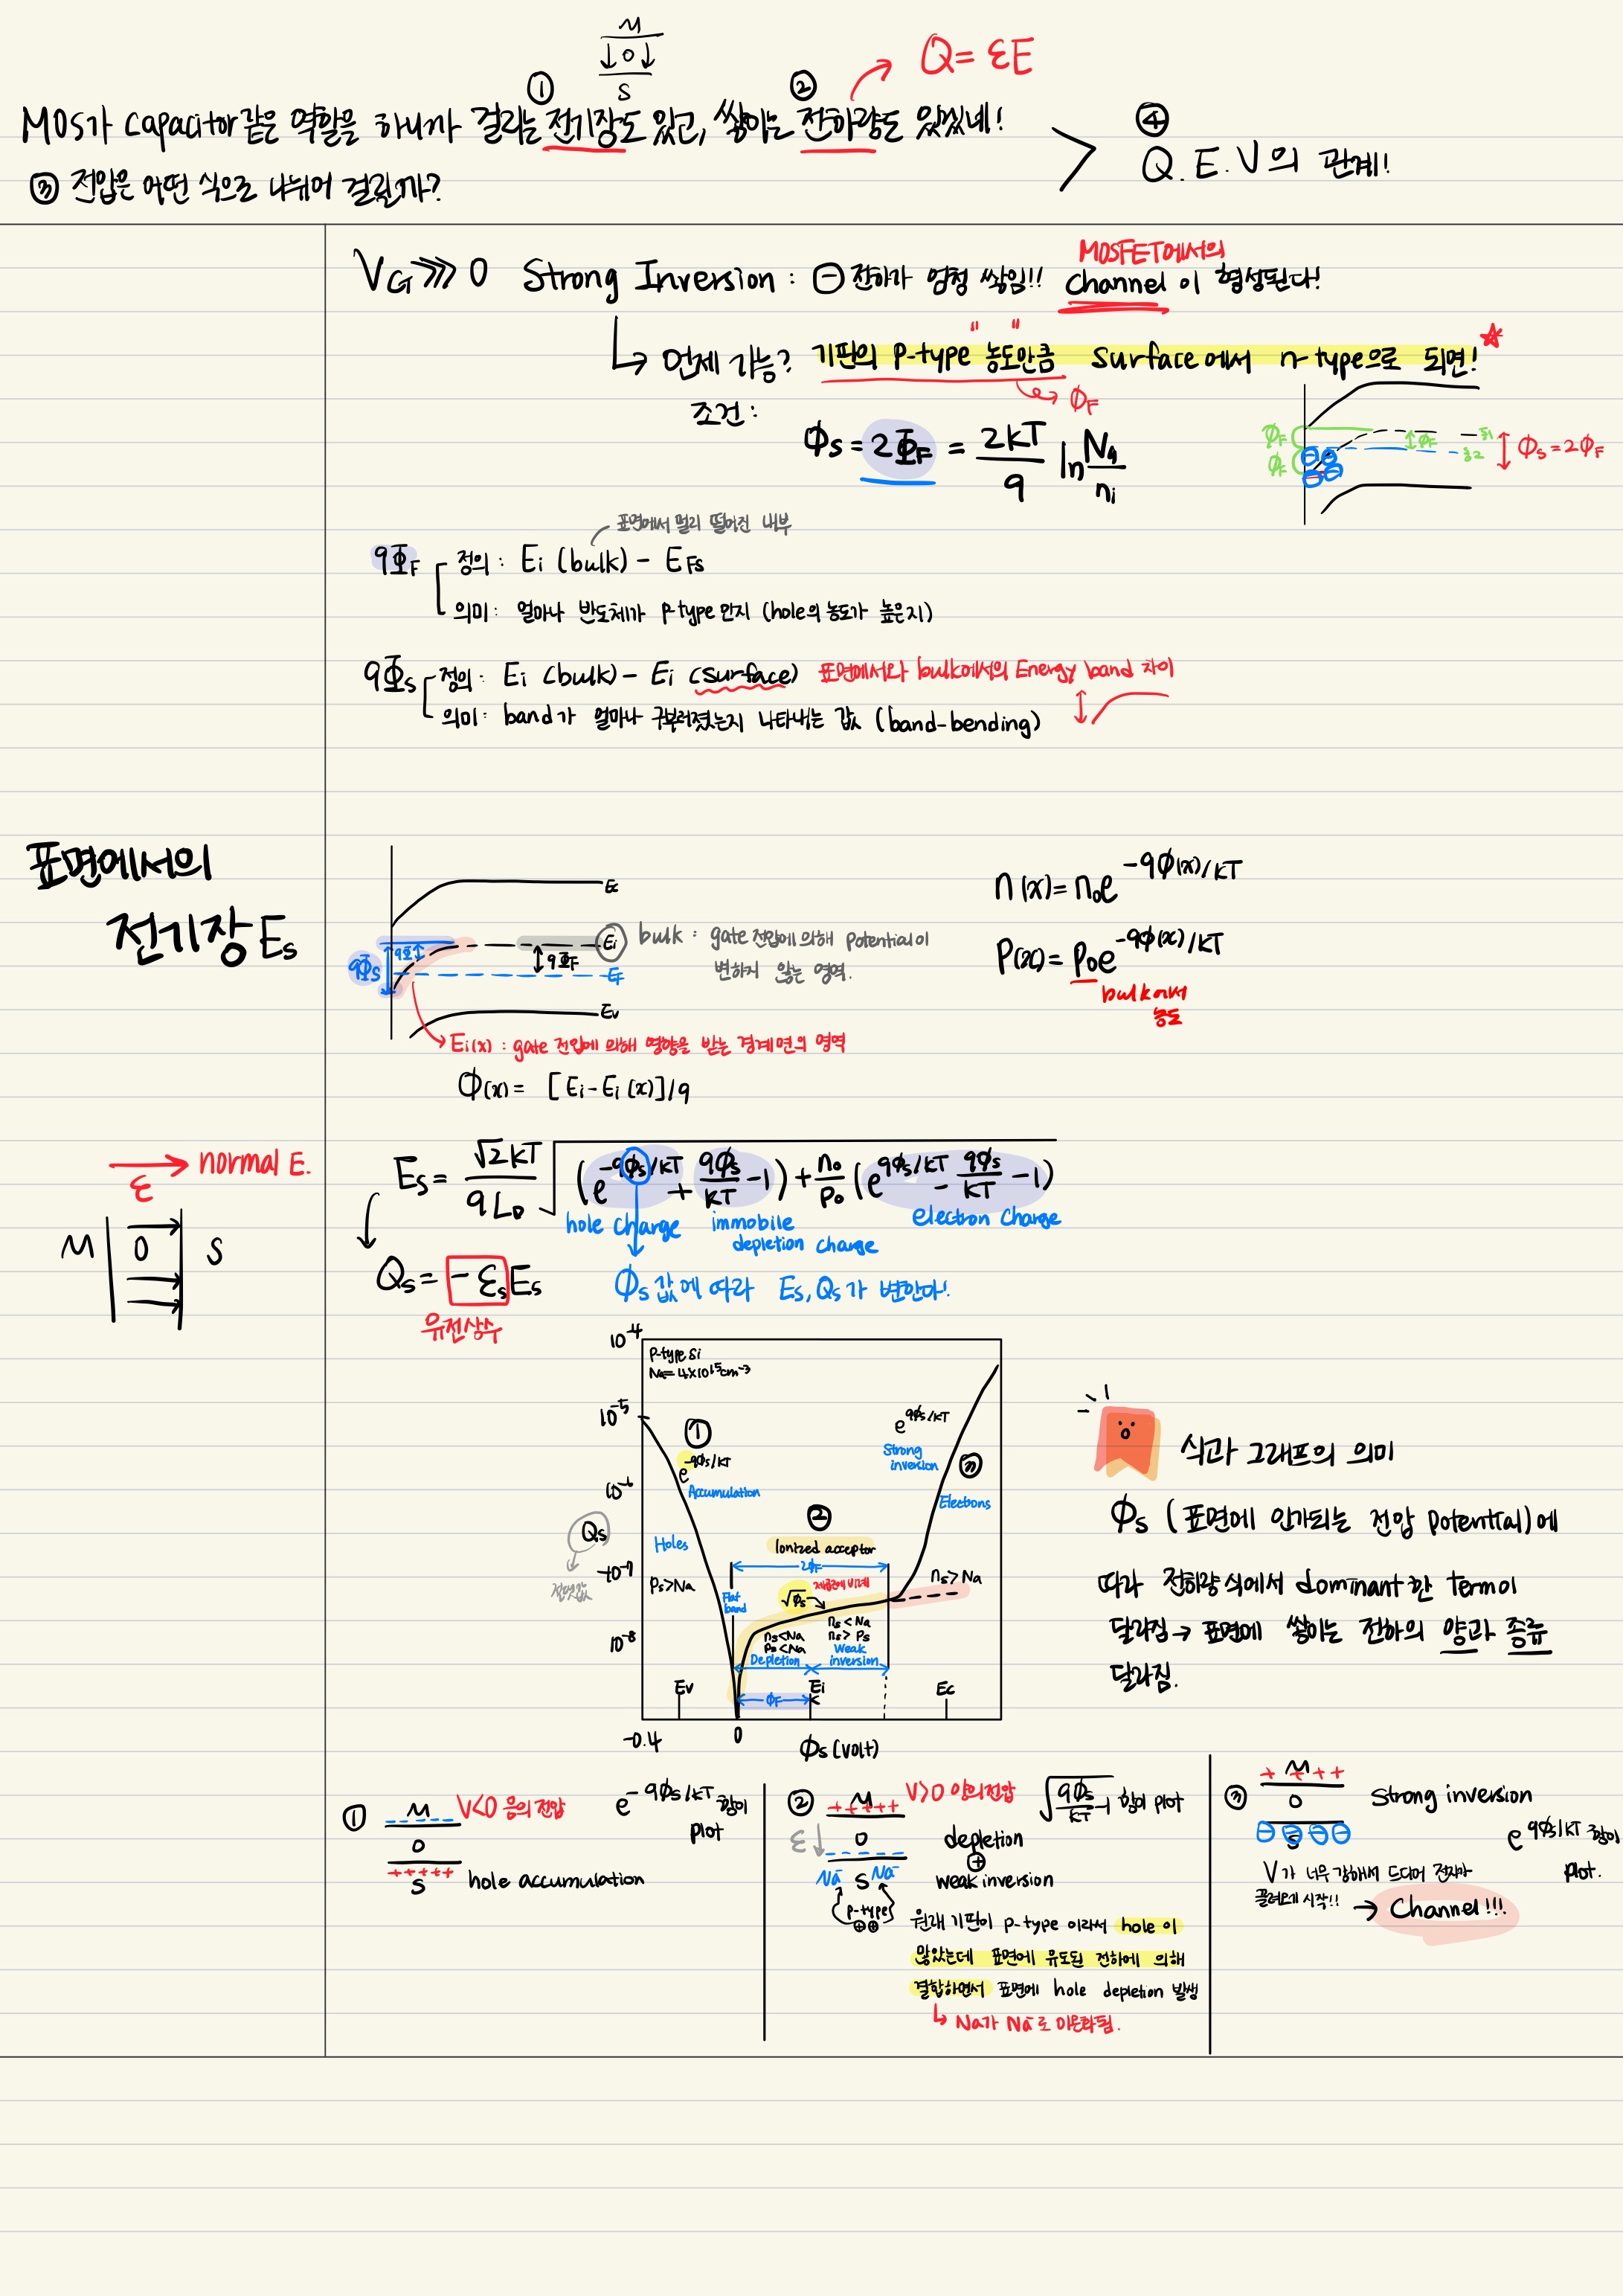 M
↓O↓
S
Q = εE
① ②
MOS가 capacitor같은 역할을 하니까 걸리는 전기장도 있고, 쌓이는 전하량도 있겠네!
③ 전압은 어떤 식으로 나뉘어 걸릴까?
④
Q. E. V의 관계!
MOSFET에서의
V_G ⋙ 0 Strong Inversion : ⊖전하가 엄청 쌓임!! Channel이 형성된다!
↳ 언제 가능? 기판의 P-type "농도만큼" surface에서 n-type으로 되면! ☆
→ ϕ_F
조건 :
ϕ_s = 2Φ_F = 2kT/q ln N_a/n_i
ϕ_F
ϕ_F
ϕ_F
ϕ_s = 2ϕ_F
표면에서 멀리 떨어진 내부
qΦ_F 정의 : Ei (bulk) - E_Fs
의미 : 얼마나 반도체가 p-type 인지 (hole의 농도가 높은지)
qΦ_s 정의 : Ei (bulk) - Ei (surface) 표면에서와 bulk에서의 Energy band 차이
의미 : band가 얼마나 구부러졌는지 나타내는 값 (band-bending)
표면에서의
전기장 Es
Ec
Ei
qΦ_s
qΦ
qΦ_F
E_F
Ev
bulk : gate 전압에 의해 potential이
변하지 않는 영역.
Ei(x) : gate 전압에 의해 영향을 받는 경계면의 영역
ϕ(x) = [Ei - Ei(x)]/q
n(x) = n₀e^-qϕ(x)/kT
P(x) = P₀e^-qϕ(x)/kT
bulk에서
농도
→ normal E.
ε
M O S
Es = √2kT/qL_D √(e^-qϕs/kT + qϕs/kT - 1) + n₀/p₀ (e^qϕs/kT - qϕs/kT - 1)
hole charge immobile depletion charge electron charge
Qs = -εs Es
유전상수
ϕs 값에 따라 Es, Qs가 변한다!
10^-4
P-type Si
Na = 4×10^15 cm^-3
10^-5
①
e^-qϕs/kT
Accumulation
e^qϕs/kT
Strong inversion
③
Electrons
10^-6
Qs
②
Ionized acceptor
Holes
2ϕF
10^-7
Ps>Na
Flat band
√ϕs 제곱근에 비례
ns>Na
10^-8
ns<Na
Ps<Na
Depletion
ns<Na
ns>Ps
Weak inversion
Ev
ϕF
Ei
Ec
-0.4
0
ϕs (volt)
식과 그래프의 의미
ϕs (표면에 인가되는 전압 potential)에
따라 전하량 식에서 dominant한 term이
달라짐 → 표면에 쌓이는 전하의 양과 종류
달라짐.
① M V<0 음의 전압
O
+++++
S hole accumulation
e^-qϕs/kT 항이
plot
② M V>0 양의 전압
+++++
ε↓ O
Na⁻ S Na⁻
p-type
⊕⊕
√qϕs/kT -1 항이 plot
depletion
⊕
weak inversion
원래 기판이 p-type 이라서 hole이
많았는데 표면에 유도된 전하에 의해
결합하면서 표면에 hole depletion 발생
↳ Na가 Na⁻로 이온화됨.
③ M
++++
O
⊖⊖⊖⊖
S
strong inversion
e^qϕs/kT 항이
plot.
V가 너무 강해서 드디어 전자가
끌려오기 시작!! → Channel!!!